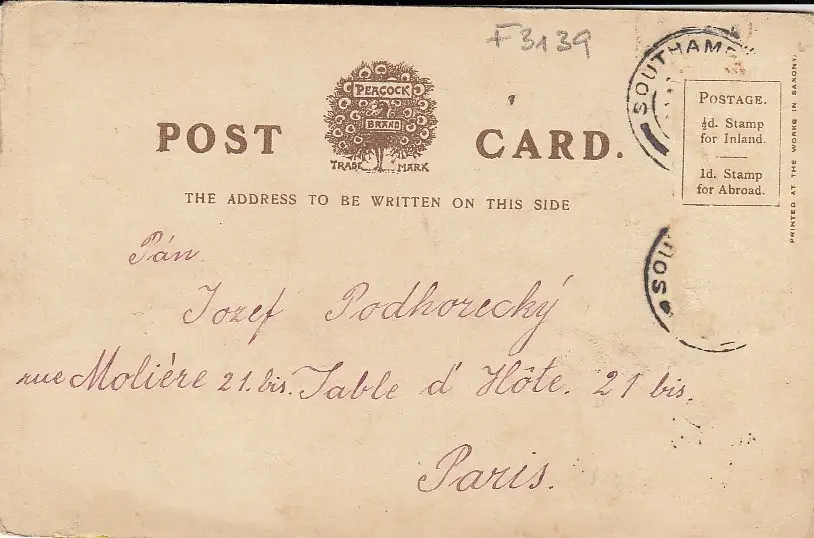 F3139
SOUTHAM
POSTAGE.
½d. Stamp
for Inland.
1d. Stamp
for Abroad.
PRINTED AT THE WORKS IN SAXONY.
PEACOCK
BRAND
TRADE MARK
POST CARD.
THE ADDRESS TO BE WRITTEN ON THIS SIDE
SOU
Pán
Jozef Podhorecký
rue Molière 21. bis. Table d' Hôte. 21 bis.
Paris.